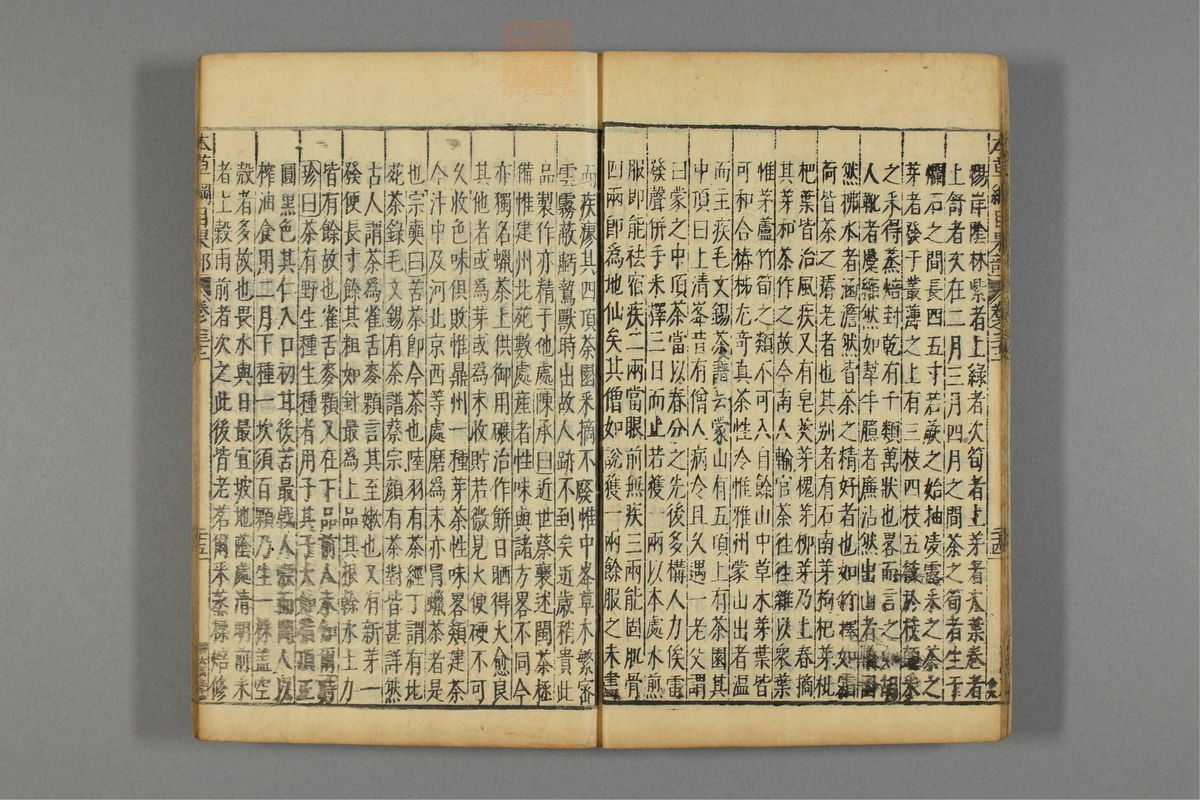 陽崖陰林紫者上綠者次筍者上芽者次葉卷者
上舒者次在二月三月四月之間茶之筍者生于
爛石之間長四五寸若蕨之始抽凌露采之茶之
芽者發于叢薄之上有三枝四枝五枝於枝顛采
之采得蒸焙封乾有千類萬狀也畧而言之如胡
人靴者蹙縮然如犎牛臆者廉沾然出山者
然拂水者涵澹然皆茶之精好者也如竹籜如霜
荷皆茶之瘠老者也其别者有石南芽枸杞芽枇
杷葉皆治風疾又有皂莢芽槐芽柳芽乃上春摘
其芽和茶作之故今南人輸官茶往往雜以衆葉
惟茅蘆竹筍之類不可入自餘山中草木芽葉皆
可和合椿柹尤奇真茶性冷惟雅州蒙山出者温
而主疾毛文錫茶譜云蒙山有五頂上有茶園其
中頂曰上清峯昔有僧人病冷且久遇一老父謂
曰蒙之中頂茶當以春分之先後多構人力俟雷
發聲併手采擇三日而止若獲一兩以本處水煎
服即能祛宿疾二兩當眼前無疾三兩能固肌骨
四兩即爲地仙矣其僧如說獲一兩餘服之未盡
而疾瘳其四頂茶園采摘不廢惟中峯草木繁密
雲霧蔽虧鷙獸時出故人跡不到矣近歲稍貴此
品製作亦精于他處陳承曰近世蔡襄述閩茶極
備惟建州北苑數處産者性味與諸方畧不同今
亦獨名蠟茶上供御用碾治作餅日晒得火愈良
其他者或爲芽或爲末收貯若微見火便硬不可
久收色味俱敗惟鼎州一種芽茶性味畧類建茶
今汴中及河北京西等處磨爲末亦冒蠟茶者是
也宗奭曰苦茶即今茶也陸羽有茶經丁謂有北
苑茶錄毛文錫有茶譜蔡宗顔有茶對皆甚詳然
古人謂茶爲雀舌麥顆言其至嫩也又有新芽一
發便長寸餘其粗如針最爲上品其根榦水土力
皆有餘故也雀舌麥顆又在下品前人未知爾時
珍曰茶有野生種生種者用子其子大如指頂正
圓黑色其仁入口初甘後苦最戟人喉而閩人以
榨油食用二月下種一坎須百顆乃生一株蓋空
殼者多故也畏水與日最宜坡地蔭處清明前采
者上穀雨前者次之此後皆老茗爾采蒸揉焙修